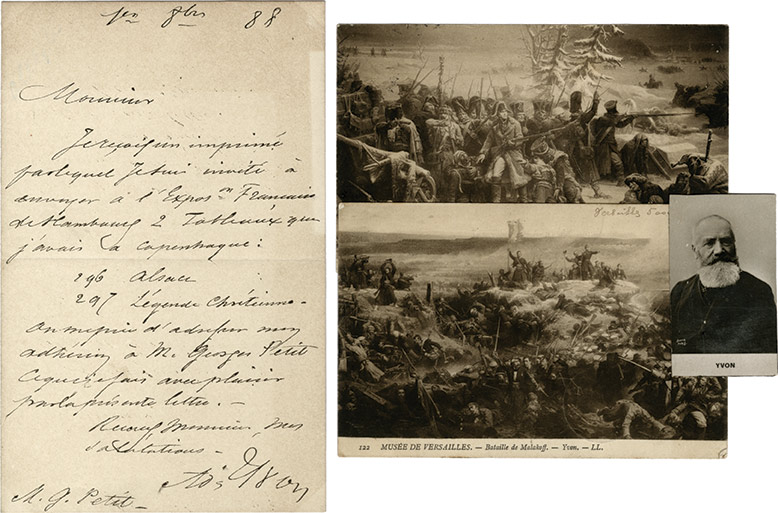 1er 8bre 88
Monsieur
Je reçois un imprimé
par lequel Je suis invité à
envoyer à l'Exposon Francaise
de Hambourg 2 Tableaux que
j'avais à Copenhague :
296 Alsace
297 Légende Chrétienne -
On me prie d'adresser mon
adhésion à M. Georges Petit
Ce que je fais avec plaisir
par la présente lettre. -
Recevez Monsieur, mes
salutations -
Ad. Yvon
M. G. Petit -
Versailles
122 MUSÉE DE VERSAILLES. — Bataille de Malakoff. — Yvon. — LL.
YVON